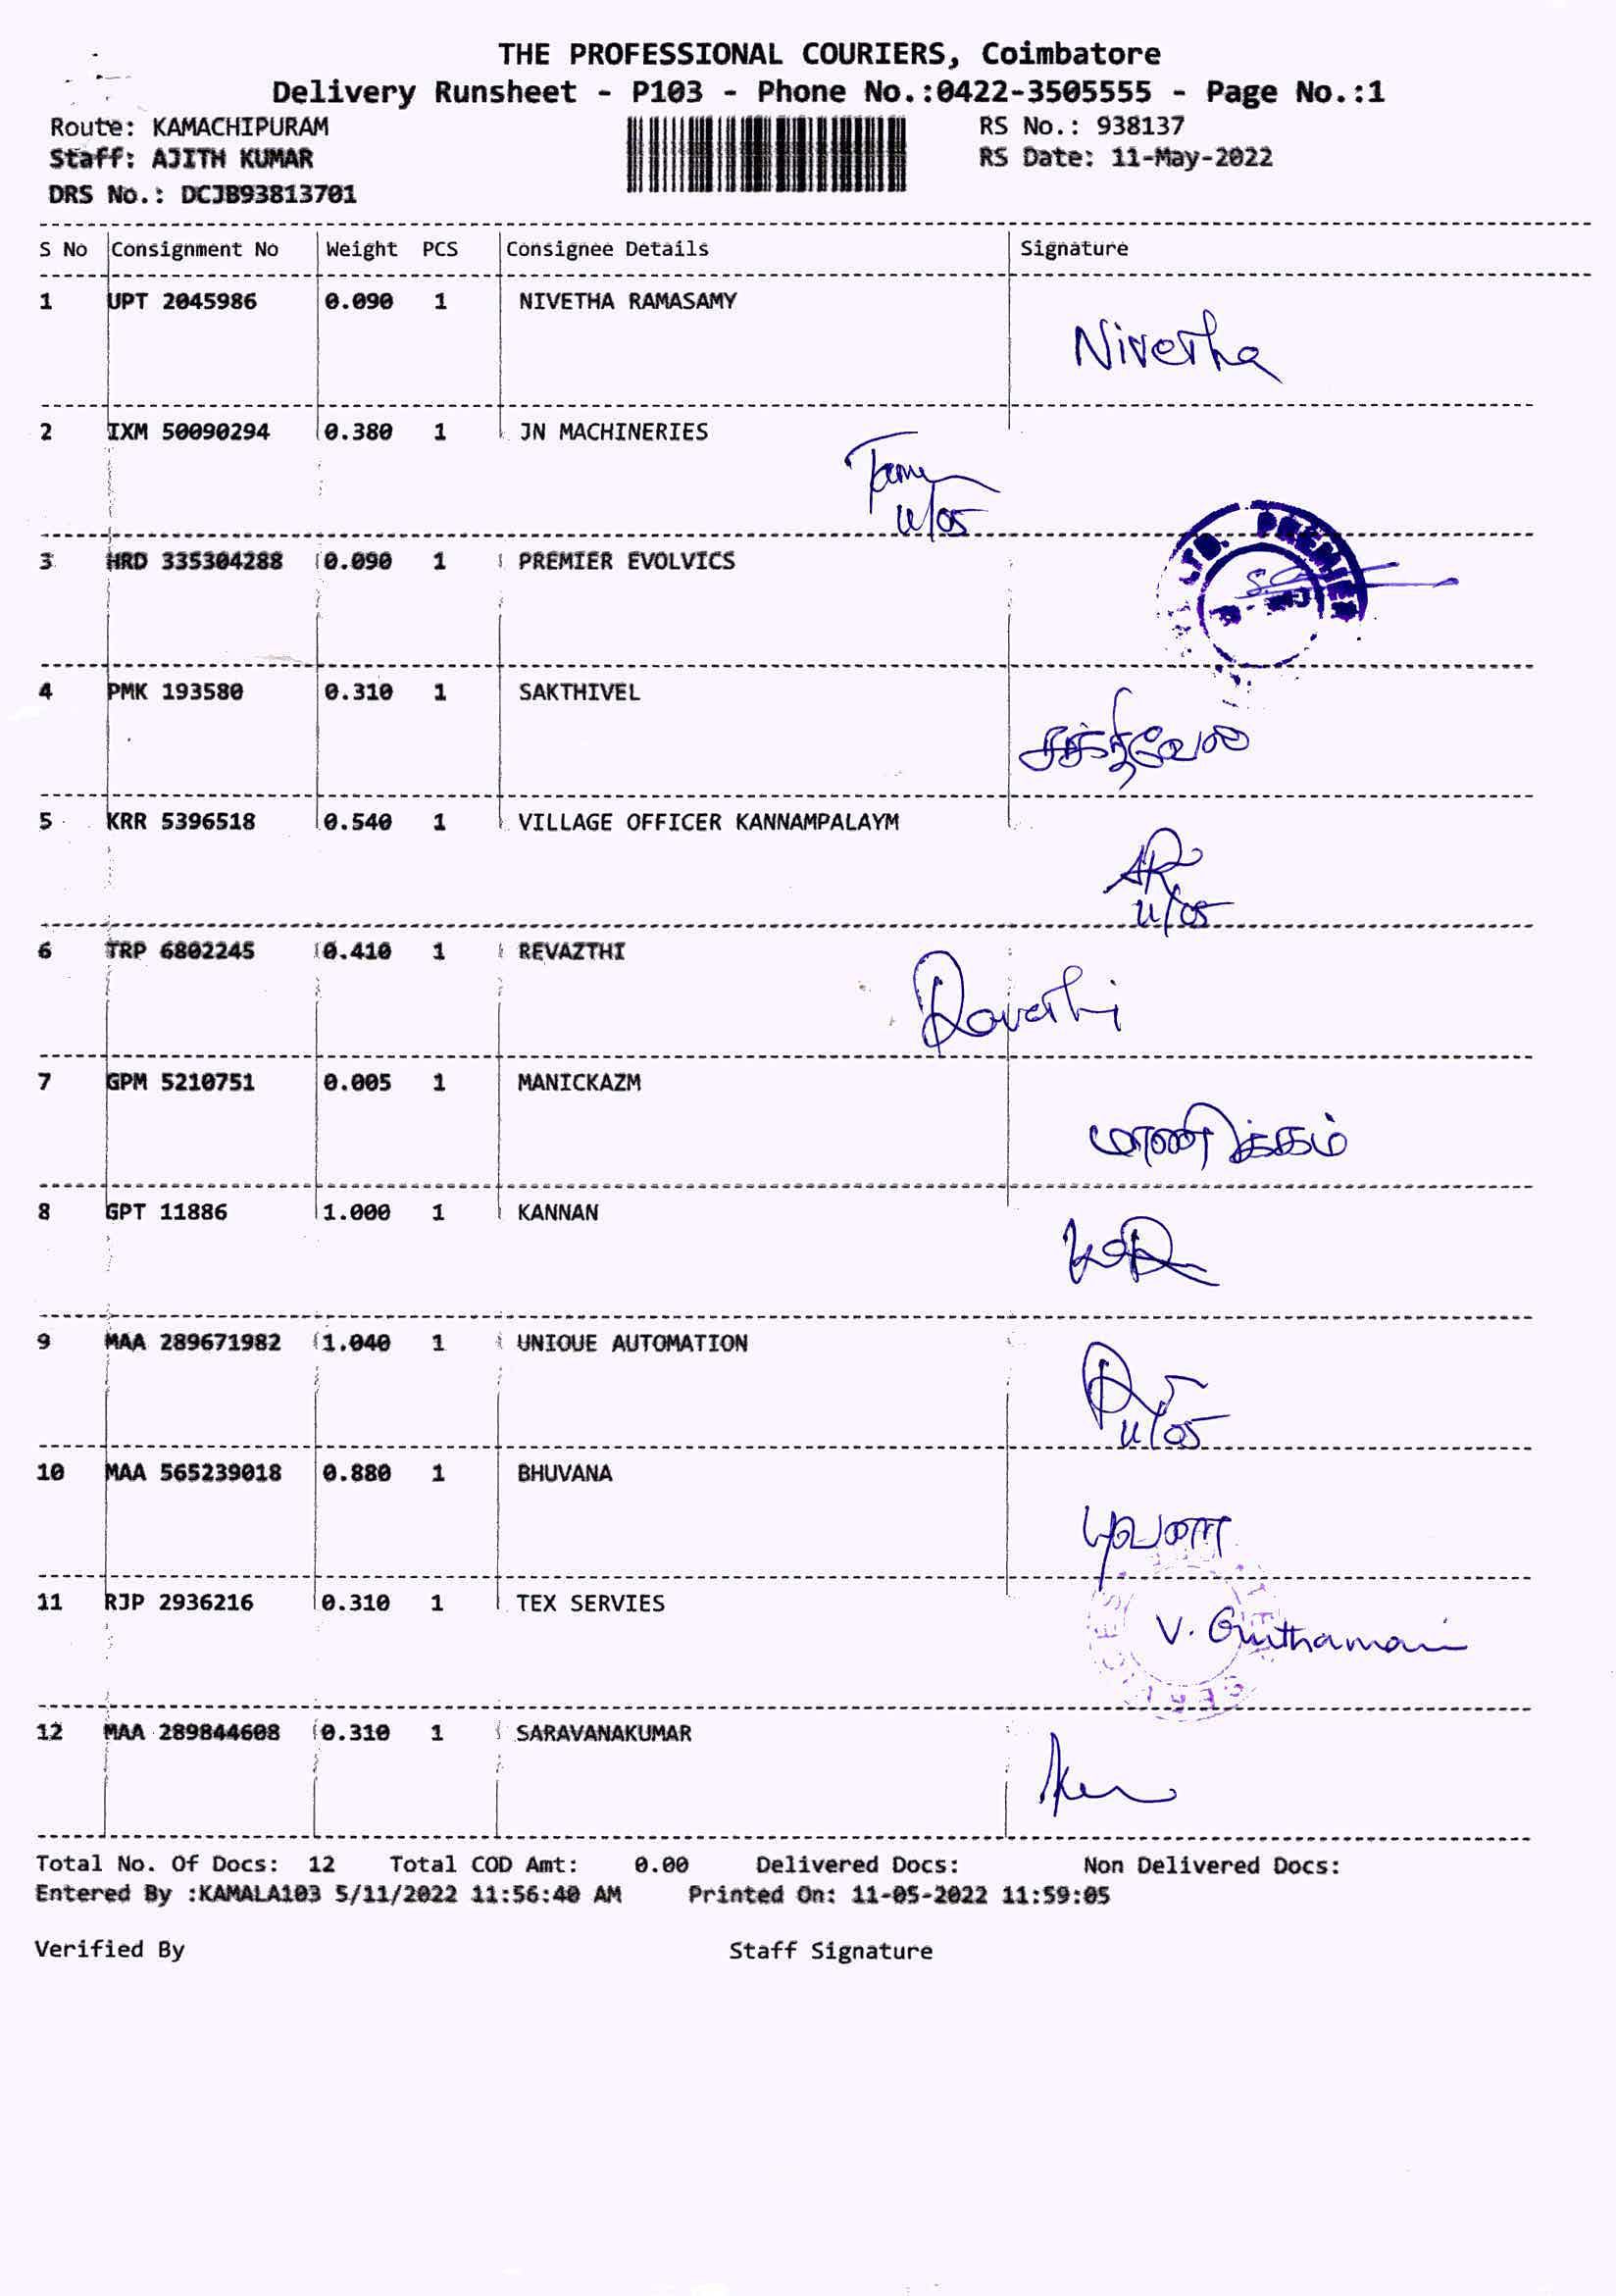 THE PROFESSIONAL COURIERS, Coimbatore
Delivery Runsheet - P103 - Phone No.:0422-3505555 - Page No.:1
Route: KAMACHIPURAM RS No.: 938137
Staff: AJITH KUMAR RS Date: 11-May-2022
DRS No.: DCJB93813701
S No Consignment No Weight PCS Consignee Details Signature
1 UPT 2045986 0.090 1 NIVETHA RAMASAMY
Nivetha
2 IXM 50090294 0.380 1 JN MACHINERIES
11/05
3 HRD 335304288 0.090 1 PREMIER EVOLVICS
LTD. PREMIER
4 PMK 193580 0.310 1 SAKTHIVEL
சக்திவேல்
5 KRR 5396518 0.540 1 VILLAGE OFFICER KANNAMPALAYM
11/05
6 TRP 6802245 0.410 1 REVAZTHI
Revathi
7 GPM 5210751 0.005 1 MANICKAZM
மாணிக்கம்
8 GPT 11886 1.000 1 KANNAN
9 MAA 289671982 1.040 1 UNIQUE AUTOMATION
11/05
10 MAA 565239018 0.880 1 BHUVANA
புவனா
11 RJP 2936216 0.310 1 TEX SERVIES
12 MAA 289844608 0.310 1 SARAVANAKUMAR
Total No. Of Docs: 12 Total COD Amt: 0.00 Delivered Docs: Non Delivered Docs:
Entered By :KAMALA103 5/11/2022 11:56:40 AM Printed On: 11-05-2022 11:59:05
Verified By Staff Signature